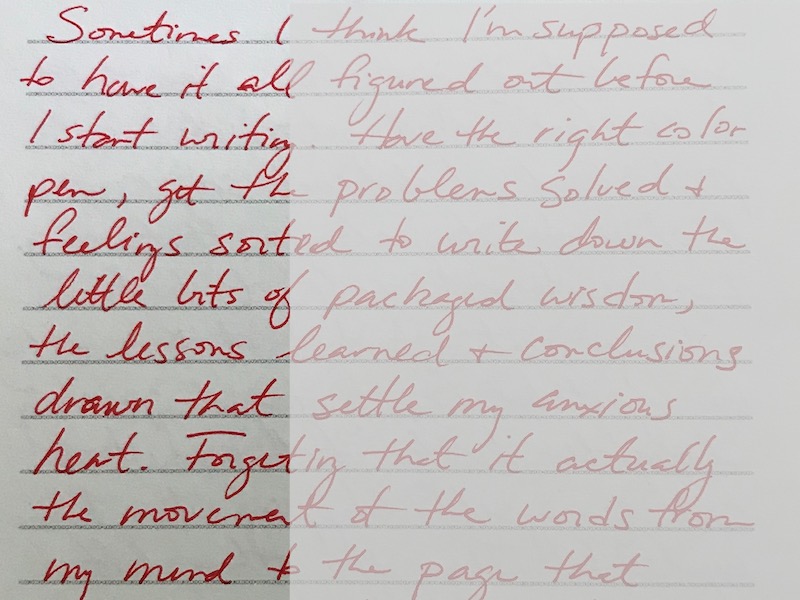 Sometimes I think I'm supposed
to have it all figured out before
I start writing. Have the right color
pen, got the problems solved +
feelings sorted to write down the
little bits of packaged wisdom,
the lessons learned + conclusions
drawn that settle my anxious
heart. Forgeting that it actually
the movement of the words from
my mind to the page that